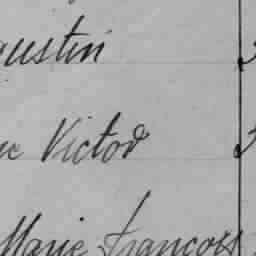 gustin
ue Victor
Marie François